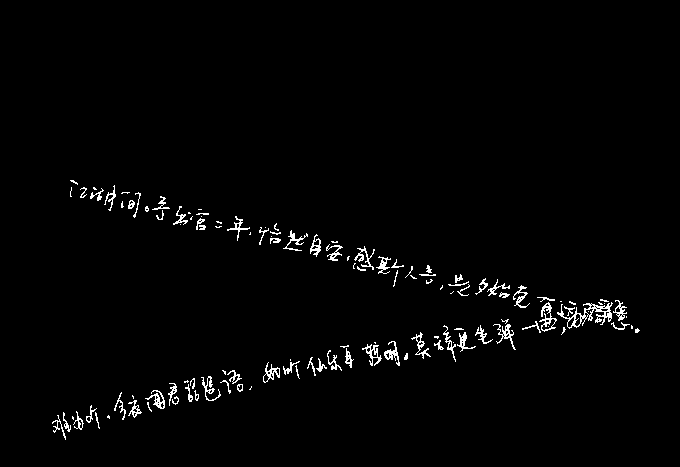 江湖间。予出官二年,恬然自安,感斯人言,是夕始觉有迁谪意。
难为听。今夜闻君琵琶语,如听仙乐耳暂明。莫辞更坐弹一